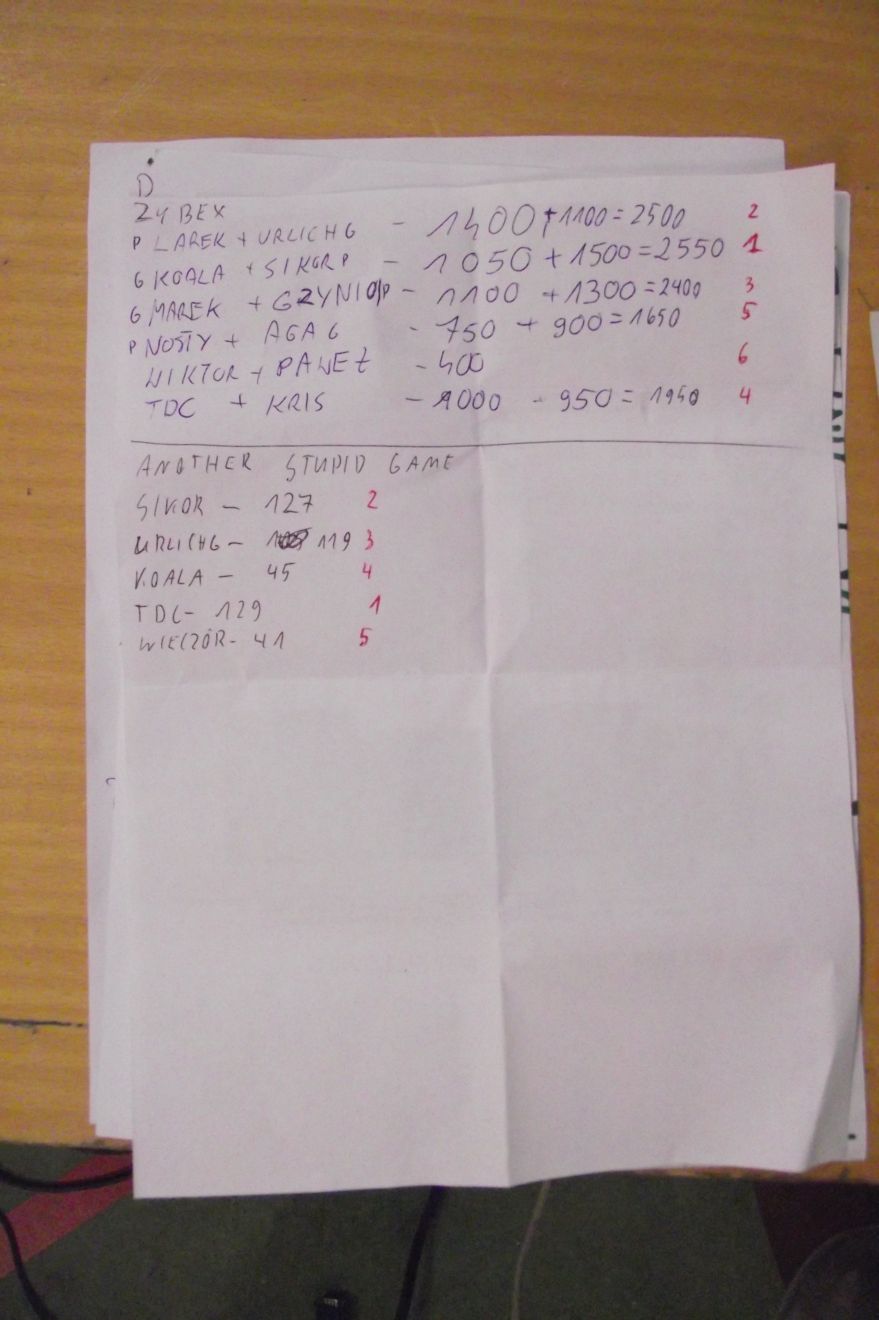 D
ZYBEX
P LAREK + URLICH G - 1400 + 1100 = 2500 2
G KOALA + SIKOR P - 1050 + 1500 = 2550 1
G MAREK + GZYNIO P - 1100 + 1300 = 2400 3
P NOSTY + AGA G - 750 + 900 = 1650 5
WIKTOR + PAWEŁ - 400 6
TDC + KRIS - 1000 - 950 = 1950 4
ANOTHER STUPID GAME
SIKOR - 127 2
URLICHG - 119 3
KOALA - 45 4
TDC - 129 1
WIECZÓR - 41 5